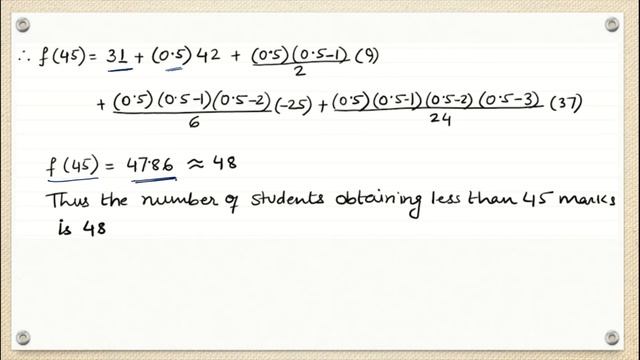 ∴ f(45) = 31 + (0.5) 42 + (0.5)(0.5-1)/2 (9)
+ (0.5)(0.5-1)(0.5-2)/6 (-25) + (0.5)(0.5-1)(0.5-2)(0.5-3)/24 (37)
f(45) = 47.86 ≈ 48
Thus the number of students obtaining less than 45 marks
is 48